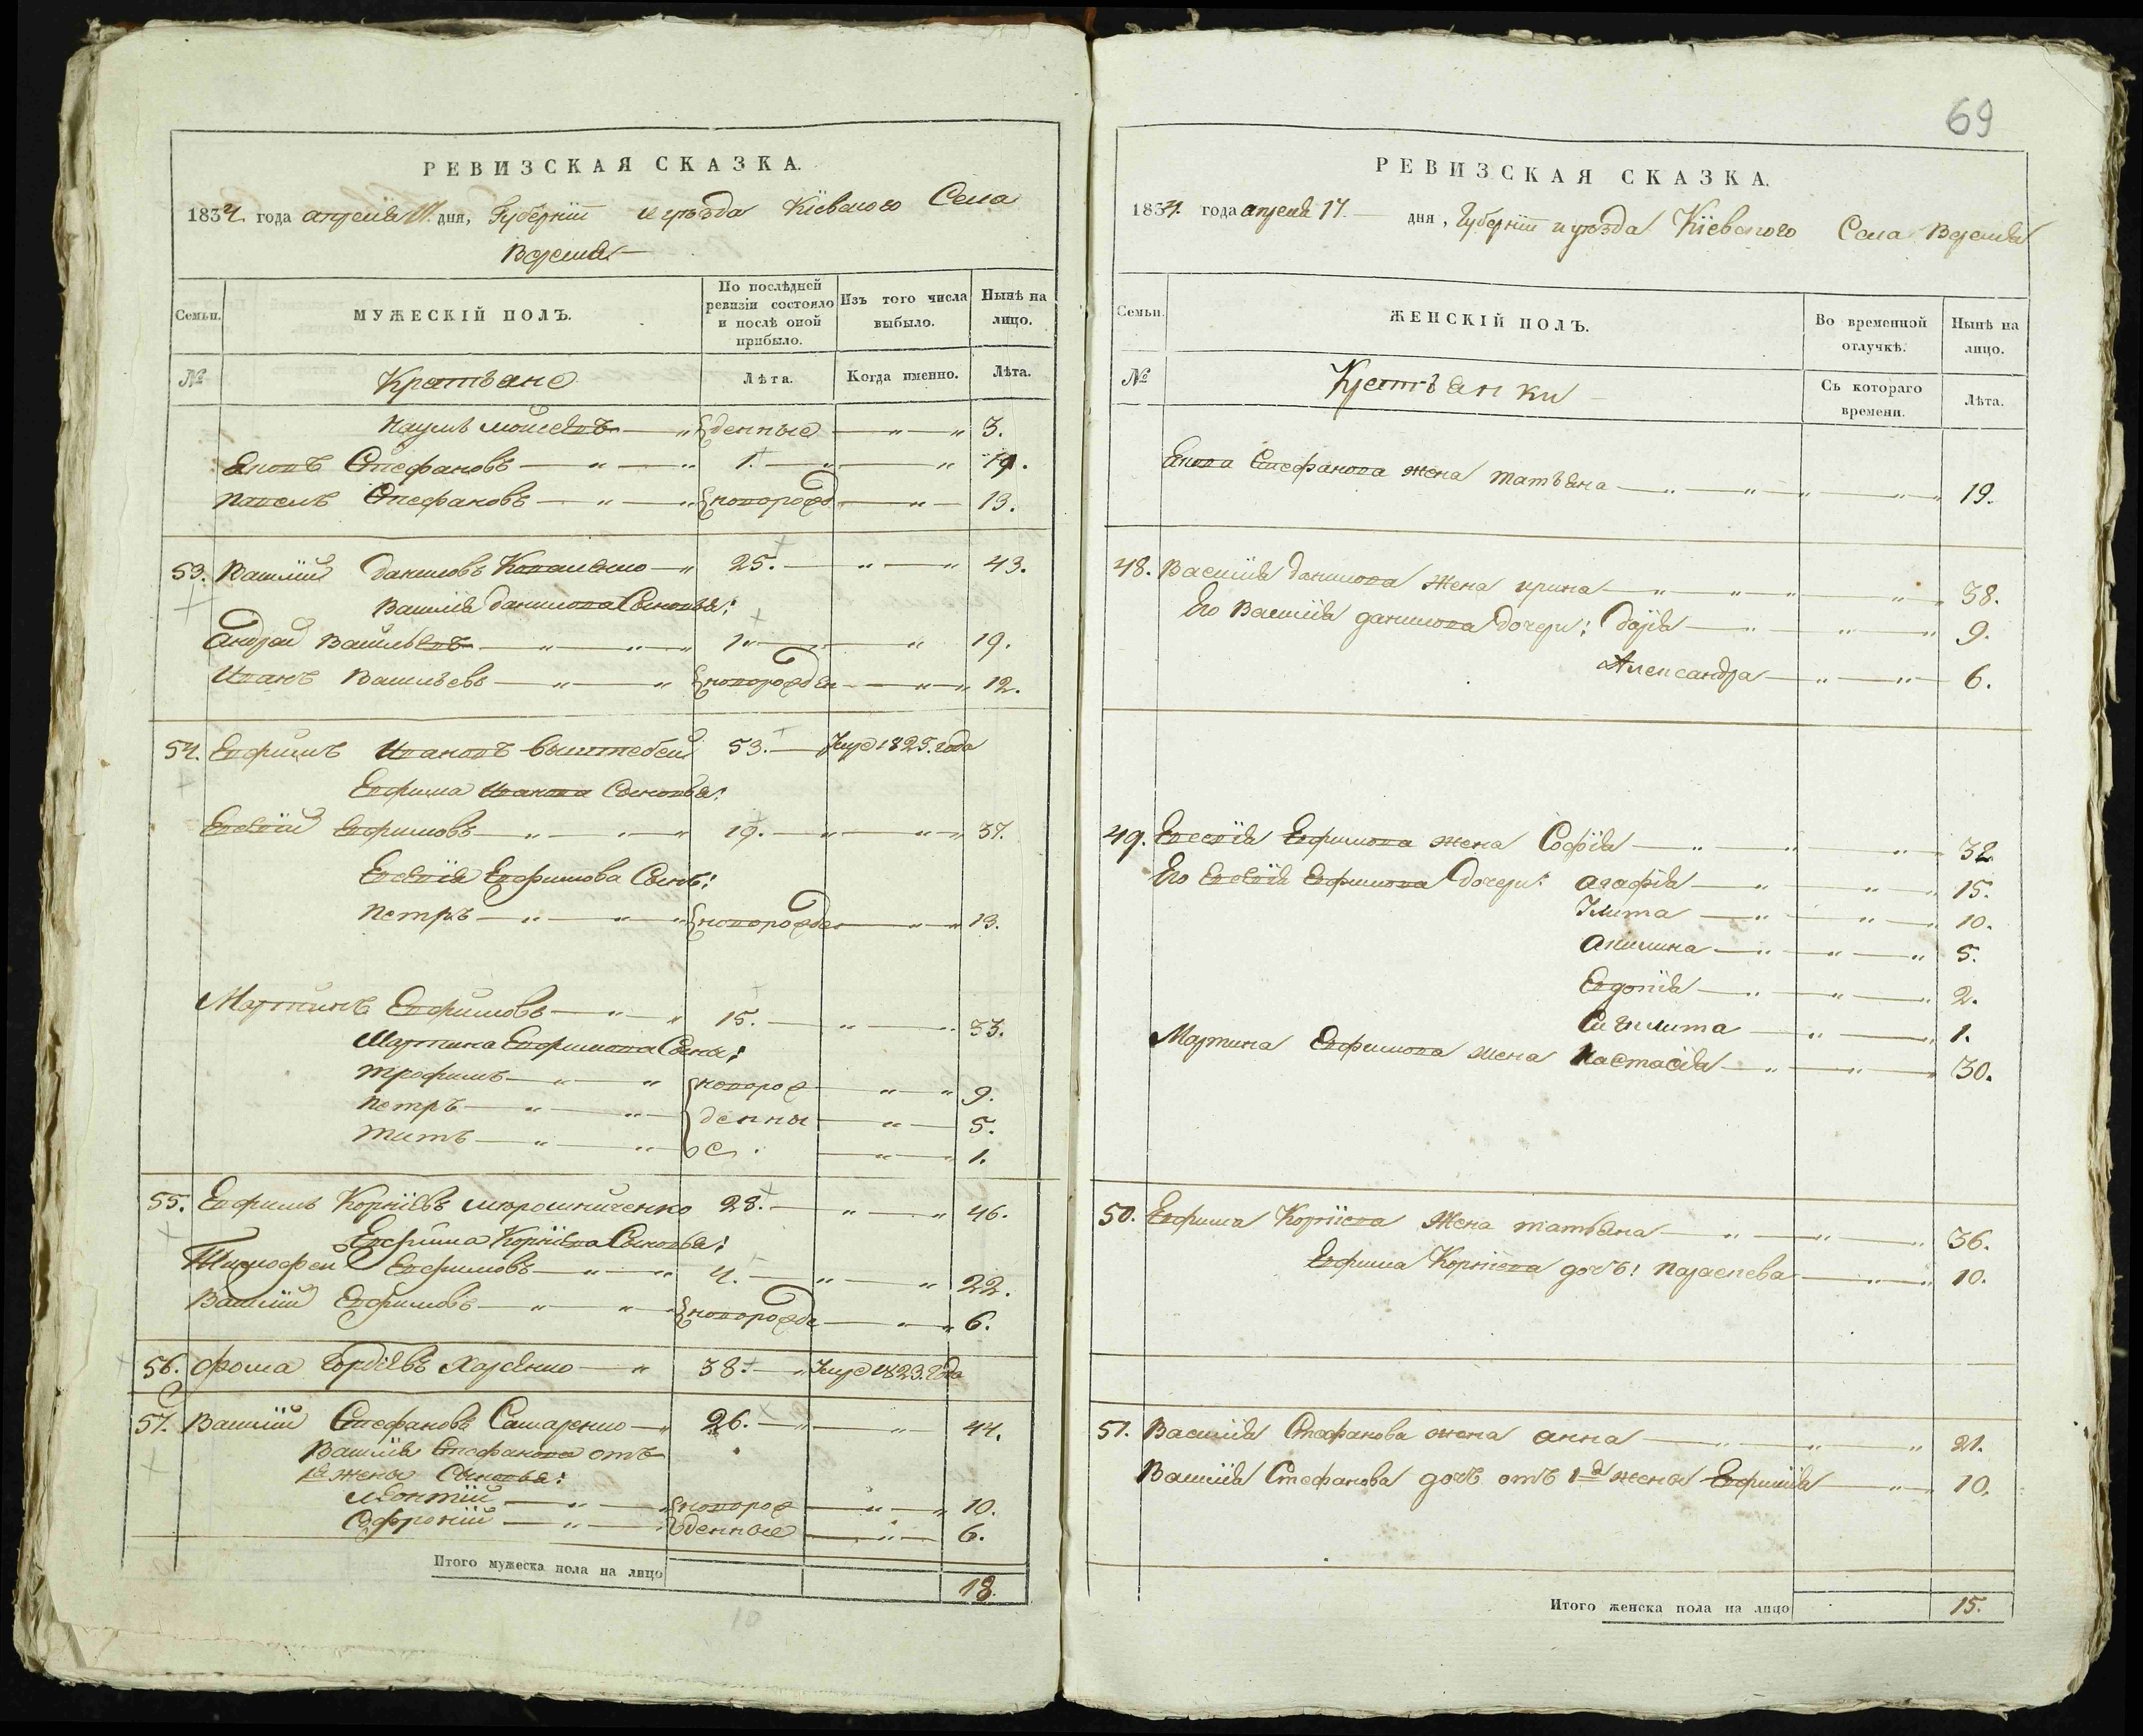 РЕВИЗСКАЯ СКАЗКА.
1834. года апреля 17. дня, Губернїи и уѣзда Кїевского Села
Веремья
Семьи.
МУЖЕСКІЙ ПОЛЪ.
По послѣдней ревизіи состояло и послѣ оной прибыло.
Изъ того числа выбыло.
Нынѣ на лицо.
№
Крестьяне
Лѣта.
Когда именно.
Лѣта.
Наумъ Мойсеевъ — „ денные — „ — „ 3.
Степановъ — „ — „ 1. — „ — „ 19.
Павелъ Стефановъ — „ — „ новорожд — „ — 13.
53. Василий Даниловъ Коваленко — „ 25. — „ — „ 43.
Василїя Данилова Сыновья:
Андрей Васильевъ — „ — „ 1. — „ 19.
Иванъ Васильевъ — „ — „ новорожден — „ — „ 12.
54. Евфимъ Ивановъ 53. — Умре 1825. года
Евфима Иванова Сыновья:
Евсевїй Евфимовъ — „ — „ 19. — „ — „ 37.
Евсевїя Евфимова Сынъ:
Петръ — „ — „ новорожде — „ — 13.
Мартинъ Евфимовъ — „ — „ 15. — „ — „ 33.
Мартина Евфимова Сыны:
Трофимъ — „ — „ новорож — „ — „ 9.
Петръ — „ — „ денны — „ — 5.
Титъ — „ — „ е. — „ — „ 1.
55. Евфимъ Корнїевъ Мирошниченко 28. — „ — „ 46.
Евфима Корнїева Сыновья:
Тимофей Евфимовъ — „ — „ 4. — „ — „ 22.
Василїй Евфимовъ — „ — „ новорожде — „ — „ 6.
56. Фома Гордѣевъ Харченко — „ 38. — „ Умре 1823. года
57. Василїй Стефановъ Самаренко — „ 26. — „ — „ 44.
Василїя Стефанова отъ
1й жены Сыновья:
Леонтїй — „ — „ новорож — „ — „ 10.
Софронїй — „ — „ денные — „ — 6.
Итого мужеска пола на лицо
18.
10
69
РЕВИЗСКАЯ СКАЗКА.
1834. года апреля 17. дня, Губернїи и уѣзда Кїевского Села Веремья
Семьи.
ЖЕНСКІЙ ПОЛЪ.
Во временной отлучкѣ.
Нынѣ на лицо.
№
Крестьянки
Съ котораго времени.
Лѣта.
Стефанова жена Татьяна — „ — „ — „ — „ 19.
48. Василїя Данилова жена Ирина — „ — „ — „ — „ 38.
Его Василїя Данилова дочери: Дарїя — „ — „ — „ 9.
Александра — „ — „ — 6.
49. Евсевїя Евфимова жена Софїя — „ — „ — „ 32
Его Евсевїя Евфимова дочери: Агафїя — „ — „ — „ 15.
Улита — „ — „ — „ 10.
Акилина — „ — „ — „ 5.
Евдокїя — „ — „ — „ 2.
— „ — 1.
Мартина Евфимова жена Настасїя — „ — „ — „ 30.
50. Евфима Корнїева жена Татьяна — „ — „ — „ 36.
Евфима Корнїева дочь: Параскева — „ — „ 10.
51. Василїя Стефанова жена Анна — „ — „ — „ 21.
Василїя Стефанова дочь отъ 1й жены Евфимїя — „ — 10.
Итого женска пола на лицо
15.